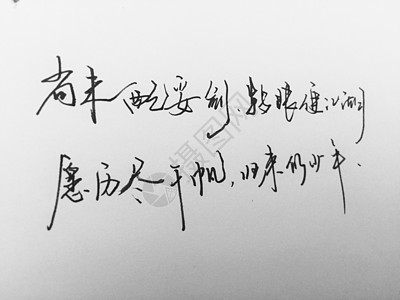 尚未配妥剑,转眼便江湖
愿历尽千帆,归来仍少年.
摄图网